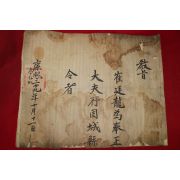 敎旨
崔廷龍爲奉正
大夫行固城縣
令者
康熙
年十月十一日